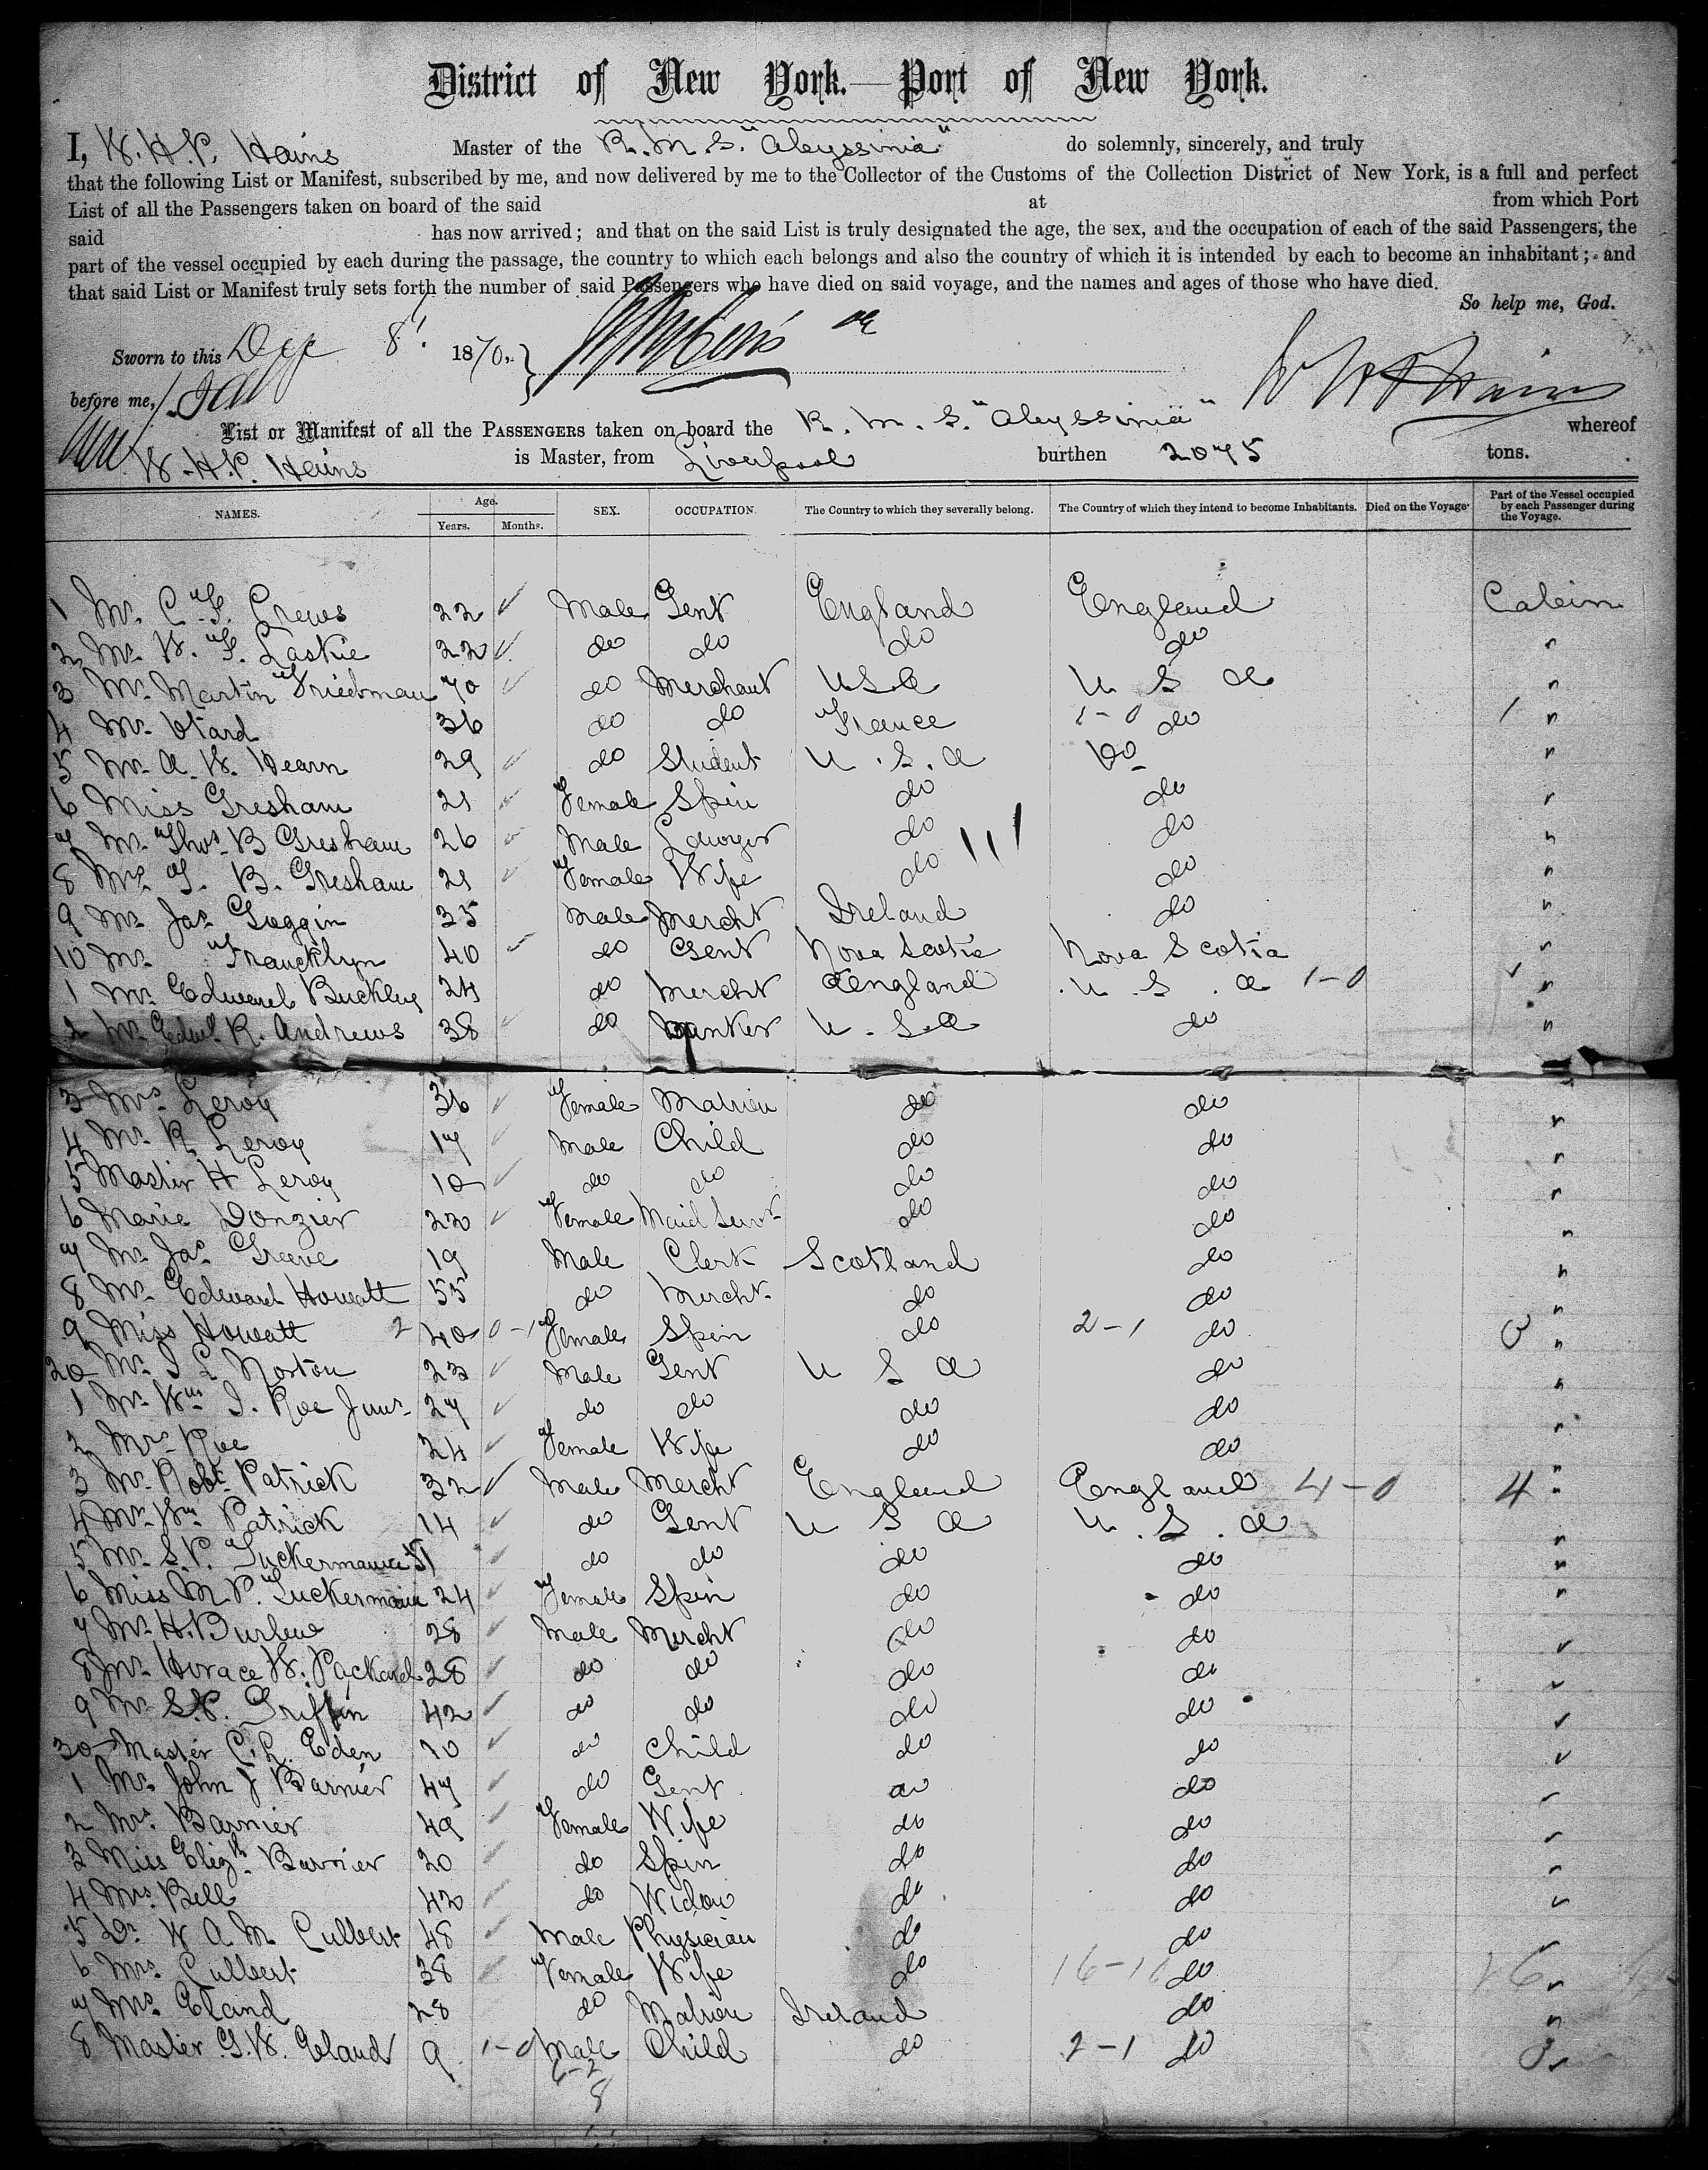 District of New York.—Port of New York.
I, W. H. P. Hains Master of the R. M. S. "Abyssinia" do solemnly, sincerely, and truly
that the following List or Manifest, subscribed by me, and now delivered by me to the Collector of the Customs of the Collection District of New York, is a full and perfect
List of all the Passengers taken on board of the said at from which Port
said has now arrived; and that on the said List is truly designated the age, the sex, and the occupation of each of the said Passengers, the
part of the vessel occupied by each during the passage, the country to which each belongs and also the country of which it is intended by each to become an inhabitant; and
that said List or Manifest truly sets forth the number of said Passengers who have died on said voyage, and the names and ages of those who have died.
So help me, God.
Sworn to this Dec 8' 1870.
before me,
W H P Hains
List or Manifest of all the PASSENGERS taken on board the R. M. S. "Abyssinia" whereof
W. H. P. Hains is Master, from Liverpool burthen 2075 tons.
NAMES. Age. Years. Months. SEX. OCCUPATION. The Country to which they severally belong. The Country of which they intend to become Inhabitants. Died on the Voyage. Part of the Vessel occupied by each Passenger during the Voyage.
1 Mr. C. F. Crews 22 Male Gent England England Cabin
2 Mr. W. F. Laskie 22 do do do do "
3 Mr. Martin Friedman 70 do Merchant U S A U S A "
4 Mr. Otard 36 do do France 1-0 do 1 "
5 Mr. A. W. Hearn 29 do Student U. S. A Do "
6 Miss Gresham 21 Female Spin do do "
7 Mr. Thos. B Gresham 26 Male Lawyer do do "
8 Mrs. T. B. Gresham 21 Female Wife do do "
9 Mr. Jas. Goggin 35 Male Mercht Ireland do "
10 Mr. Francklyn 40 do Gent Nova Scotia Nova Scotia "
1 Mr. Edward Buckley 24 do Mercht England U. S. A 1-0 "
2 Mr. Edwd. R. Andrews 38 do Banker U. S. A do "
3 Mrs. Leroy 36 Female Matron do do "
4 Mr. R. Leroy 17 Male Child do do "
5 Master H Leroy 10 do do do do "
6 Marie Donzier 22 Female Maid Servt do do "
7 Mr. Jas. Greeve 19 Male Clerk Scotland do "
8 Mr. Edward Howatt 55 do Mercht. do do "
9 Miss Howatt 2 40 0-1 Female Spin do 2-1 do 3 "
20 Mr. I L Norton 23 Male Gent U S A do "
1 Mr. Wm. I. Roe Junr. 27 do do do do "
2 Mrs. Roe 24 Female Wife do do "
3 Mr. Robt. Patrick 32 Male Mercht England England 4-0 4 "
4 Mr. Wm Patrick 14 do Gent U S A U. S. A "
5 Mr. S. P. Tuckermann 51 do do do do "
6 Miss M. P. Tuckermann 24 Female Spin do do "
7 Mr. H. Burlew 28 Male Mercht do do "
8 Mr. Horace W. Packard 28 do do do do "
9 Mr. S. P. Griffin 42 do do do do "
30 Master C. R. Eden 10 do Child do do "
1 Mr. John J Barnier 47 do Gent do do "
2 Mrs. Barnier 49 Female Wife do do "
3 Miss Elizth. Barnier 20 do Spin do do "
4 Mrs. Bell 42 do Widow do do "
5 Dr. W A M Culbert 48 Male Physician do do "
6 Mrs. Culbert 38 Female Wife do do "
7 Mrs. Eland 28 do Matron Ireland do "
8 Master G. W. Eland 9 1-0 Male Child do 2-1 do 3 "
6-2
8